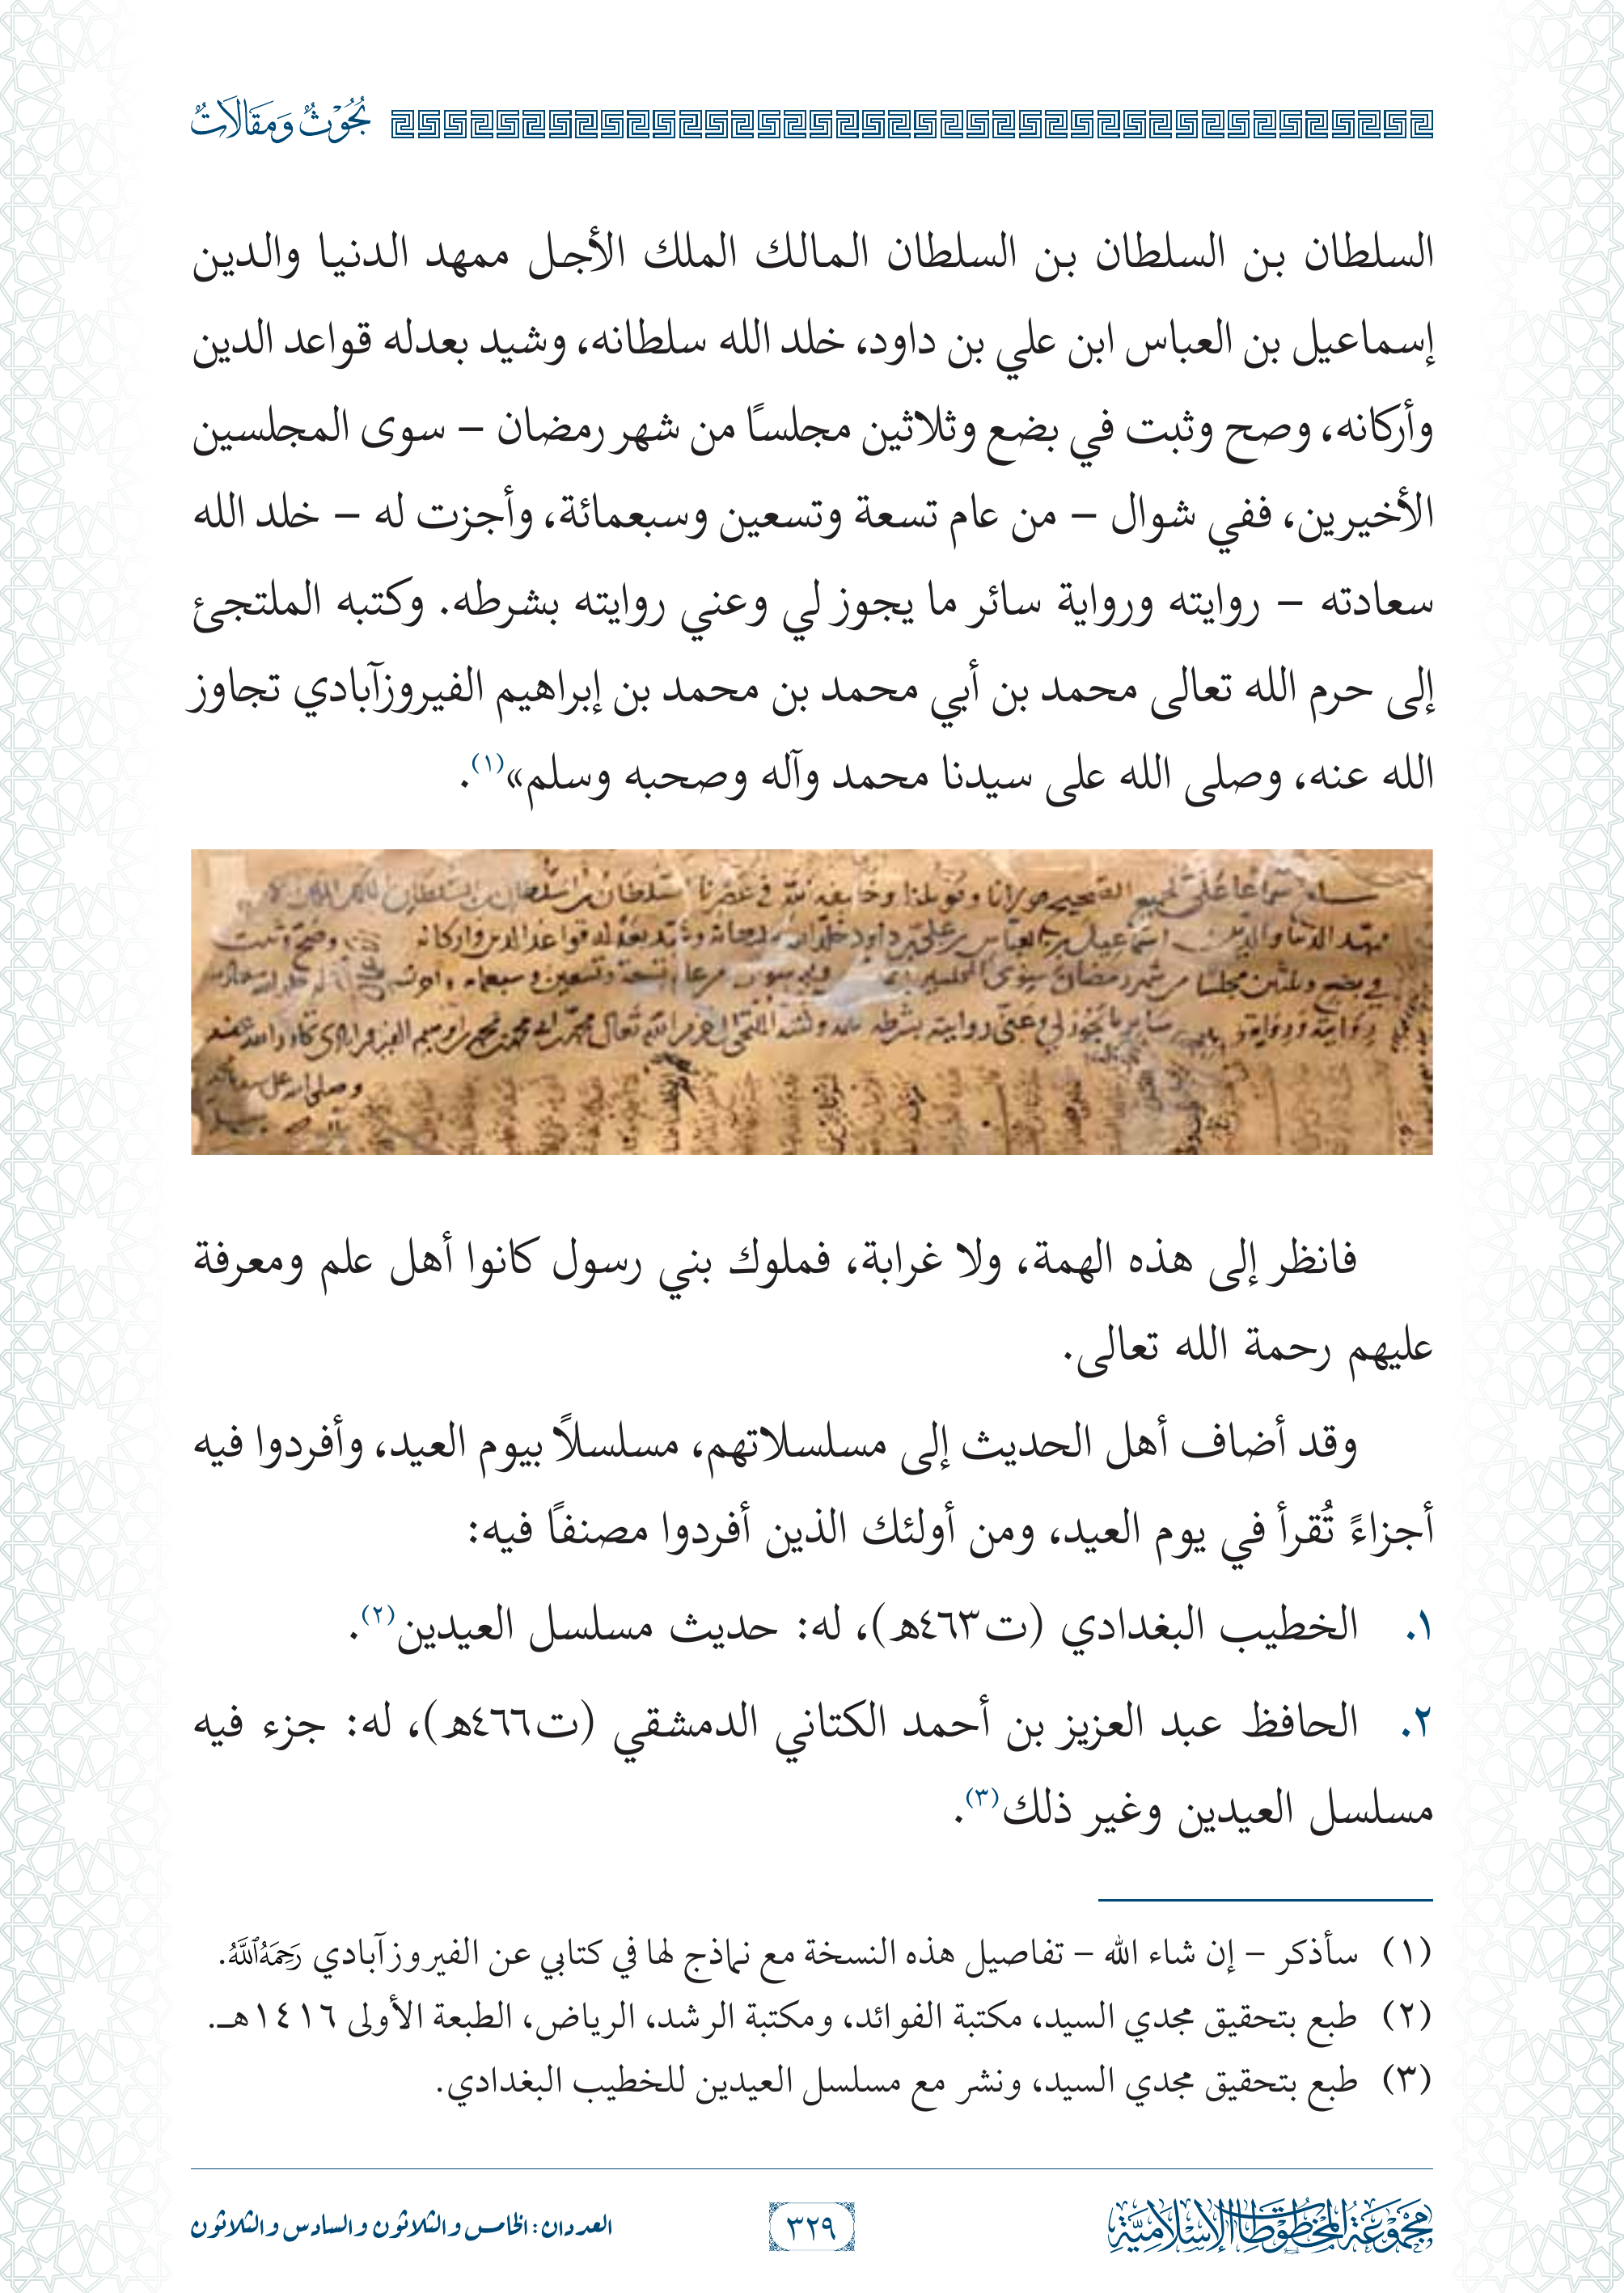 بُحُوْثٌ وَمَقَالَاتٌ
السلطان بن السلطان بن السلطان المالك الملك الأجل ممهد الدنيا والدين
إسماعيل بن العباس ابن علي بن داود، خلد الله سلطانه، وشيد بعدله قواعد الدين
وأركانه، وصح وثبت في بضع وثلاثين مجلسًا من شهر رمضان – سوى المجلسين
الأخيرين، ففي شوال – من عام تسعة وتسعين وسبعمائة، وأجزت له – خلد الله
سعادته – روايته ورواية سائر ما يجوز لي وعني روايته بشرطه. وكتبه الملتجئ
إلى حرم الله تعالى محمد بن أبي محمد بن محمد بن إبراهيم الفيروزآبادي تجاوز
الله عنه، وصلى الله على سيدنا محمد وآله وصحبه وسلم»(١).
فانظر إلى هذه الهمة، ولا غرابة، فملوك بني رسول كانوا أهل علم ومعرفة
عليهم رحمة الله تعالى.
وقد أضاف أهل الحديث إلى مسلسلاتهم، مسلسلًا بيوم العيد، وأفردوا فيه
أجزاءً تُقرأ في يوم العيد، ومن أولئك الذين أفردوا مصنفًا فيه:
١. الخطيب البغدادي (ت٤٦٣هـ)، له: حديث مسلسل العيدين(٢).
٢. الحافظ عبد العزيز بن أحمد الكتاني الدمشقي (ت٤٦٦هـ)، له: جزء فيه
مسلسل العيدين وغير ذلك(٣).
(١) سأذكر – إن شاء الله – تفاصيل هذه النسخة مع نماذج لها في كتابي عن الفيروزآبادي رَحِمَهُ ٱللَّهُ.
(٢) طبع بتحقيق مجدي السيد، مكتبة الفوائد، ومكتبة الرشد، الرياض، الطبعة الأولى ١٤١٦هـ.
(٣) طبع بتحقيق مجدي السيد، ونشر مع مسلسل العيدين للخطيب البغدادي.
مَجْمُوعَةُ المَخْطُوطَاتِ الإِسْلَامِيَّةِ
٣٢٩
العددان: الخامس والثلاثون والسادس والثلاثون